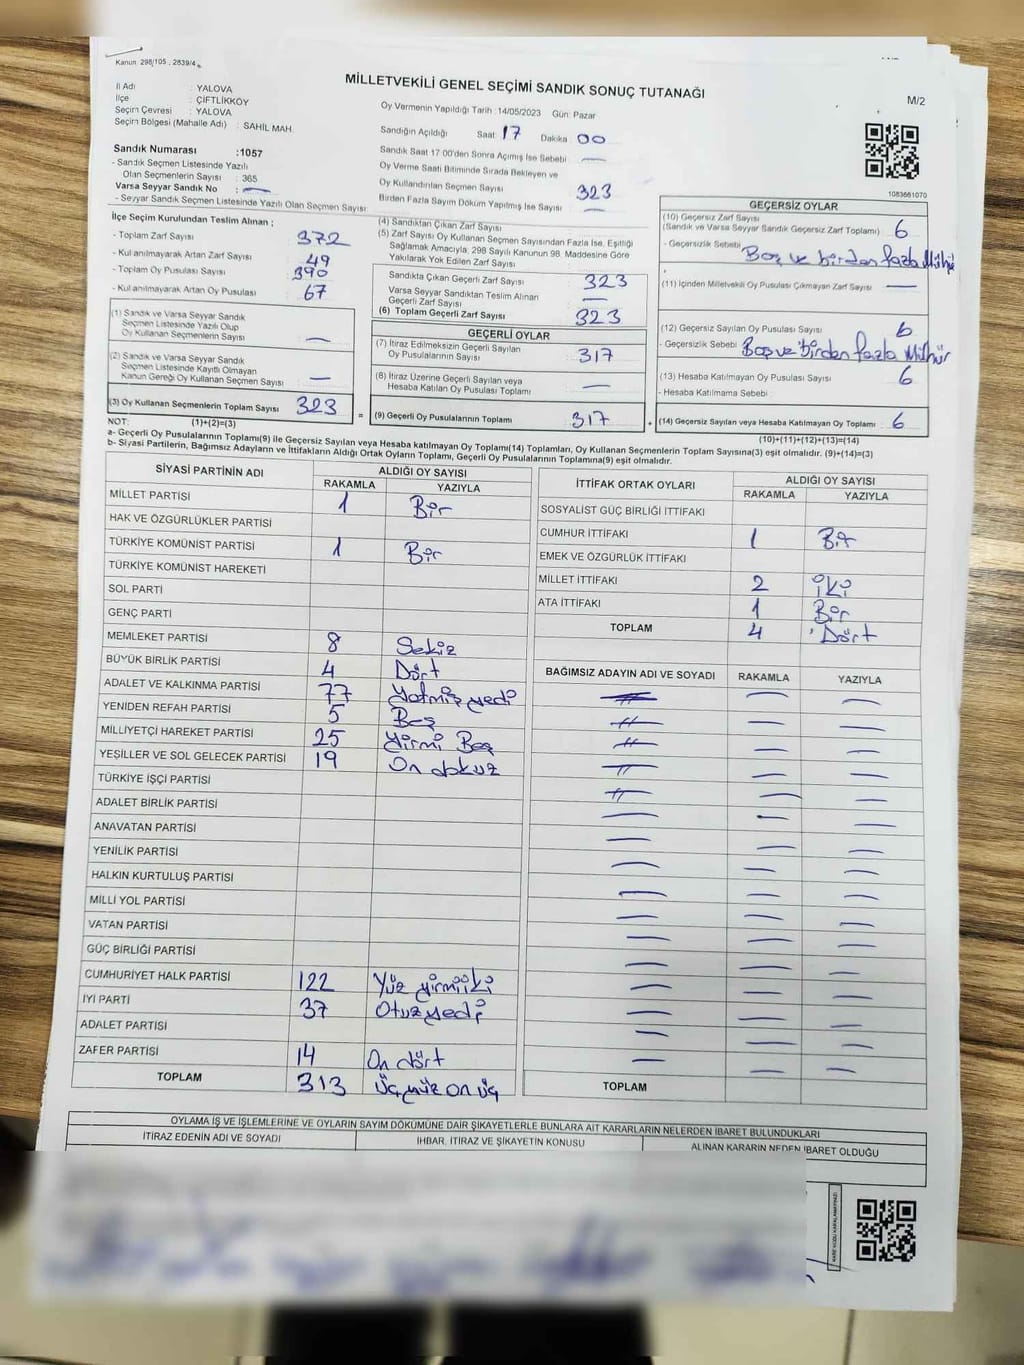 Kanun 298/105, 2839/4
MİLLETVEKİLİ GENEL SEÇİMİ SANDIK SONUÇ TUTANAĞI
M/2
İl Adı : YALOVA
İlçe : ÇİFTLİKKÖY
Seçim Çevresi : YALOVA
Seçim Bölgesi (Mahalle Adı) : SAHİL MAH.
Oy Vermenin Yapıldığı Tarih :14/05/2023 Gün: Pazar
Sandığın Açıldığı Saat 17 Dakika 00
Sandık Saat 17.00'den Sonra Açılmış İse Sebebi —
Oy Verme Saati Bitiminde Sırada Bekleyen ve
Oy Kullandırılan Seçmen Sayısı 323
Birden Fazla Sayım Döküm Yapılmış İse Sayısı —
Sandık Numarası :1057
- Sandık Seçmen Listesinde Yazılı
Olan Seçmenlerin Sayısı : 365
Varsa Seyyar Sandık No : —
- Seyyar Sandık Seçmen Listesinde Yazılı Olan Seçmen Sayısı:
1083661070
İlçe Seçim Kurulundan Teslim Alınan ;
- Toplam Zarf Sayısı : 372
- Kullanılmayarak Artan Zarf Sayısı : 49
- Toplam Oy Pusulası Sayısı : 390
- Kullanılmayarak Artan Oy Pusulası : 67
(1) Sandık ve Varsa Seyyar Sandık
Seçmen Listesinde Yazılı Olup
Oy Kullanan Seçmenlerin Sayısı : —
(2) Sandık ve Varsa Seyyar Sandık
Seçmen Listesinde Kayıtlı Olmayan
Kanun Gereği Oy Kullanan Seçmen Sayısı : —
(3) Oy Kullanan Seçmenlerin Toplam Sayısı 323
(4) Sandıktan Çıkan Zarf Sayısı :
(5) Zarf Sayısı Oy Kullanan Seçmen Sayısından Fazla İse, Eşitliği
Sağlamak Amacıyla, 298 Sayılı Kanunun 98. Maddesine Göre
Yakılarak Yok Edilen Zarf Sayısı :
Sandıkta Çıkan Geçerli Zarf Sayısı : 323
Varsa Seyyar Sandıktan Teslim Alınan
Geçerli Zarf Sayısı : —
(6) Toplam Geçerli Zarf Sayısı : 323
GEÇERLİ OYLAR
(7) İtiraz Edilmeksizin Geçerli Sayılan
Oy Pusulalarının Sayısı : 317
(8) İtiraz Üzerine Geçerli Sayılan veya
Hesaba Katılan Oy Pusulası Toplamı : —
= (9) Geçerli Oy Pusulalarının Toplamı 317
GEÇERSİZ OYLAR
(10) Geçersiz Zarf Sayısı
(Sandık ve Varsa Seyyar Sandık Geçersiz Zarf Toplamı) : 6
- Geçersizlik Sebebi : Boş ve birden fazla Mühür
(11) İçinden Milletvekili Oy Pusulası Çıkmayan Zarf Sayısı : —
(12) Geçersiz Sayılan Oy Pusulası Sayısı : 6
- Geçersizlik Sebebi : Boş ve birden fazla Mühür
(13) Hesaba Katılmayan Oy Pusulası Sayısı : 6
- Hesaba Katılmama Sebebi :
+ (14) Geçersiz Sayılan veya Hesaba Katılmayan Oy Toplamı : 6
NOT: (1)+(2)=(3)
(10)+(11)+(12)+(13)=(14)
a- Geçerli Oy Pusulalarının Toplamı(9) ile Geçersiz Sayılan veya Hesaba katılmayan Oy Toplamı(14) Toplamları, Oy Kullanan Seçmenlerin Toplam Sayısına(3) eşit olmalıdır. (9)+(14)=(3)
b- Siyasi Partilerin, Bağımsız Adayların ve İttifakların Aldığı Ortak Oyların Toplamı, Geçerli Oy Pusulalarının Toplamına(9) eşit olmalıdır.
SİYASİ PARTİNİN ADI
ALDIĞI OY SAYISI
RAKAMLA YAZIYLA
MİLLET PARTİSİ 1 Bir
HAK VE ÖZGÜRLÜKLER PARTİSİ
TÜRKİYE KOMÜNİST PARTİSİ 1 Bir
TÜRKİYE KOMÜNİST HAREKETİ
SOL PARTİ
GENÇ PARTİ
MEMLEKET PARTİSİ 8 Sekiz
BÜYÜK BİRLİK PARTİSİ 4 Dört
ADALET VE KALKINMA PARTİSİ 77 Yetmiş yedi
YENİDEN REFAH PARTİSİ 5 Beş
MİLLİYETÇİ HAREKET PARTİSİ 25 Yirmi Beş
YEŞİLLER VE SOL GELECEK PARTİSİ 19 On dokuz
TÜRKİYE İŞÇİ PARTİSİ
ADALET BİRLİK PARTİSİ
ANAVATAN PARTİSİ
YENİLİK PARTİSİ
HALKIN KURTULUŞ PARTİSİ
MİLLİ YOL PARTİSİ
VATAN PARTİSİ
GÜÇ BİRLİĞİ PARTİSİ
CUMHURİYET HALK PARTİSİ 122 Yüz yirmiiki
İYİ PARTİ 37 Otuzyedi
ADALET PARTİSİ
ZAFER PARTİSİ 14 On dört
TOPLAM 313 Üçyüz onüç
İTTİFAK ORTAK OYLARI
ALDIĞI OY SAYISI
RAKAMLA YAZIYLA
SOSYALİST GÜÇ BİRLİĞİ İTTİFAKI
CUMHUR İTTİFAKI 1 Bir
EMEK VE ÖZGÜRLÜK İTTİFAKI
MİLLET İTTİFAKI 2 iki
ATA İTTİFAKI 1 Bir
TOPLAM 4 Dört
BAĞIMSIZ ADAYIN ADI VE SOYADI RAKAMLA YAZIYLA
TOPLAM
OYLAMA İŞ VE İŞLEMLERİNE VE OYLARIN SAYIM DÖKÜMÜNE DAİR ŞİKAYETLERLE BUNLARA AİT KARARLARIN NELERDEN İBARET BULUNDUKLARI
İTİRAZ EDENİN ADI VE SOYADI
İHBAR, İTİRAZ VE ŞİKAYETİN KONUSU
ALINAN KARARIN NEDEN İBARET OLDUĞU
KARE KODU KARALAMAYINIZ!